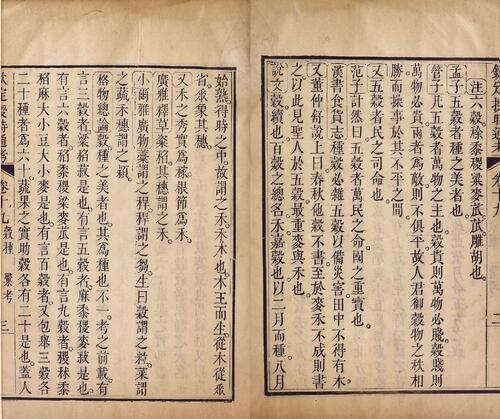 注六穀稌黍稷粱麥苽苽雕胡也
孟子五穀者種之美者也
管子凡五穀者萬物之主也穀貴則萬物必賤穀賤則
萬物必貴兩者為敵則不俱平故人君御穀物之秩相
勝而操事於其不平之間
又五穀者民之司命也
范子計然曰五穀者萬民之命國之重寶也
漢書食貨志種穀必雜五穀以備災害田中不得有木
又董仲舒說上曰春秋他穀不書至於麥禾不成則書
之以此見聖人於五穀最重麥與禾也
說文穀續也百穀之總名禾嘉穀也以二月而種八月
始熟得時之中故謂之禾禾木也木王而生從木從𠂹
省𠂹象其穗
又禾之秀實為稼根節為禾
廣雅釋草粢稻其穗謂之禾
小爾雅廣物稾謂之稈稈謂之芻生曰穀謂之粒菜謂
之蔬禾穗謂之穎
格物總論穀種之美者也其為種也不一考之前載有
言三穀者粱稻菽是也有言五穀者麻黍稷麥菽是也
有言六穀者稻黍稷粱麥苽是也有言九穀者稷秫黍
稻麻大小豆大小麥是也有言百穀者又包舉三穀各
二十種者為六十蔬果之實助穀各有二十是也蓋人
欽定授時通考 卷十九 穀種 彙考 三